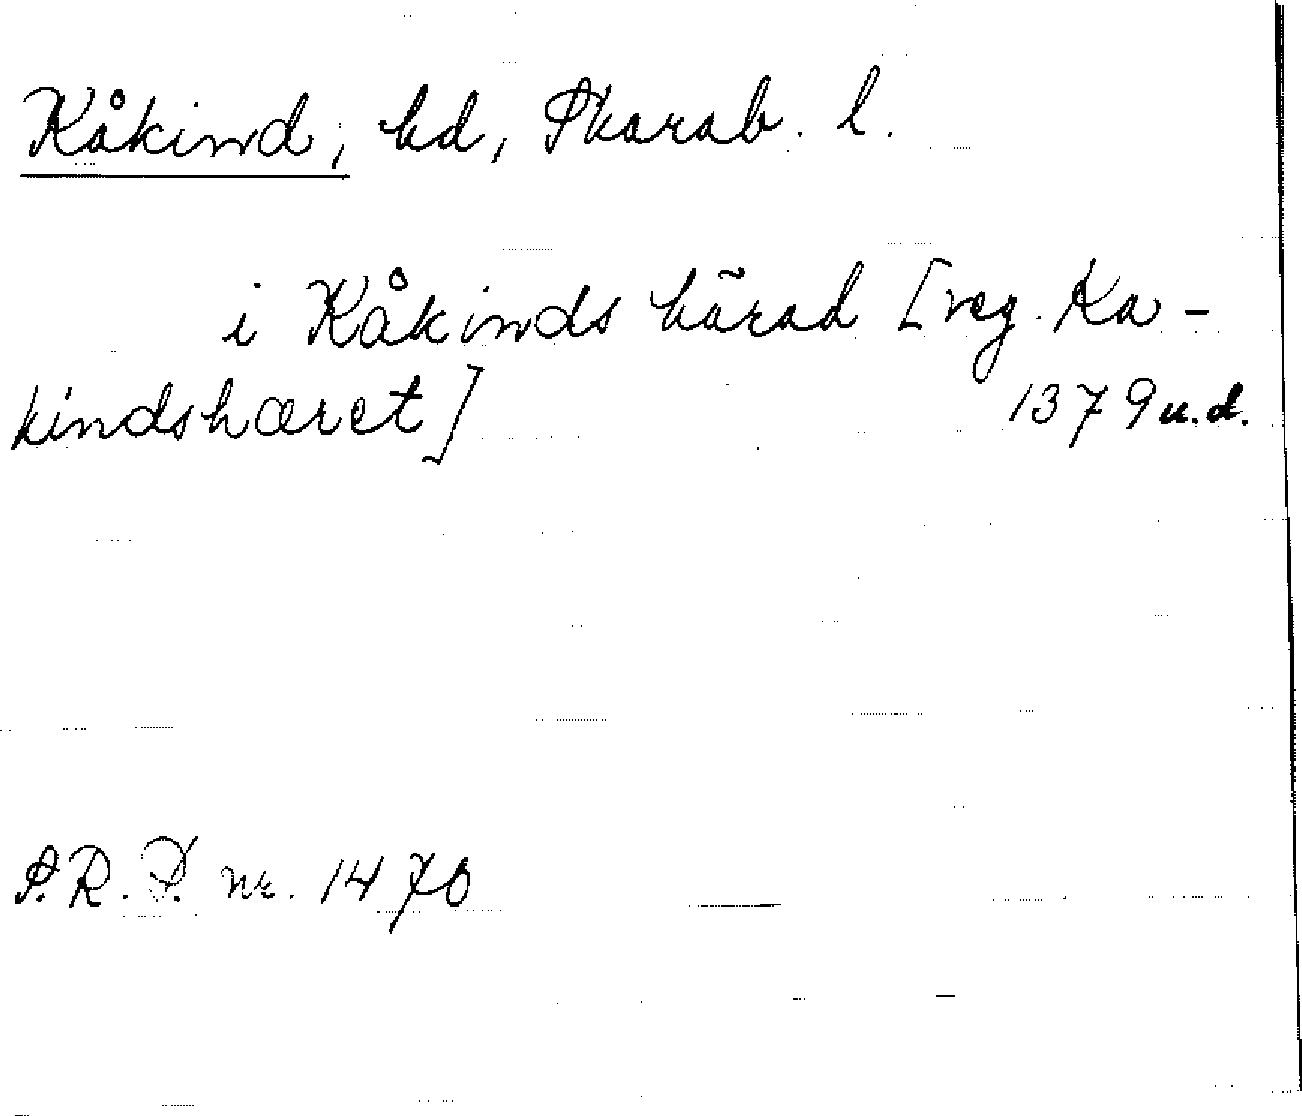 Kåkind, hd, Skarab. l.
i Kåkinds härad [reg. Ka-
kindshæret] 1379 u.d.
S.R.P. nr. 1470